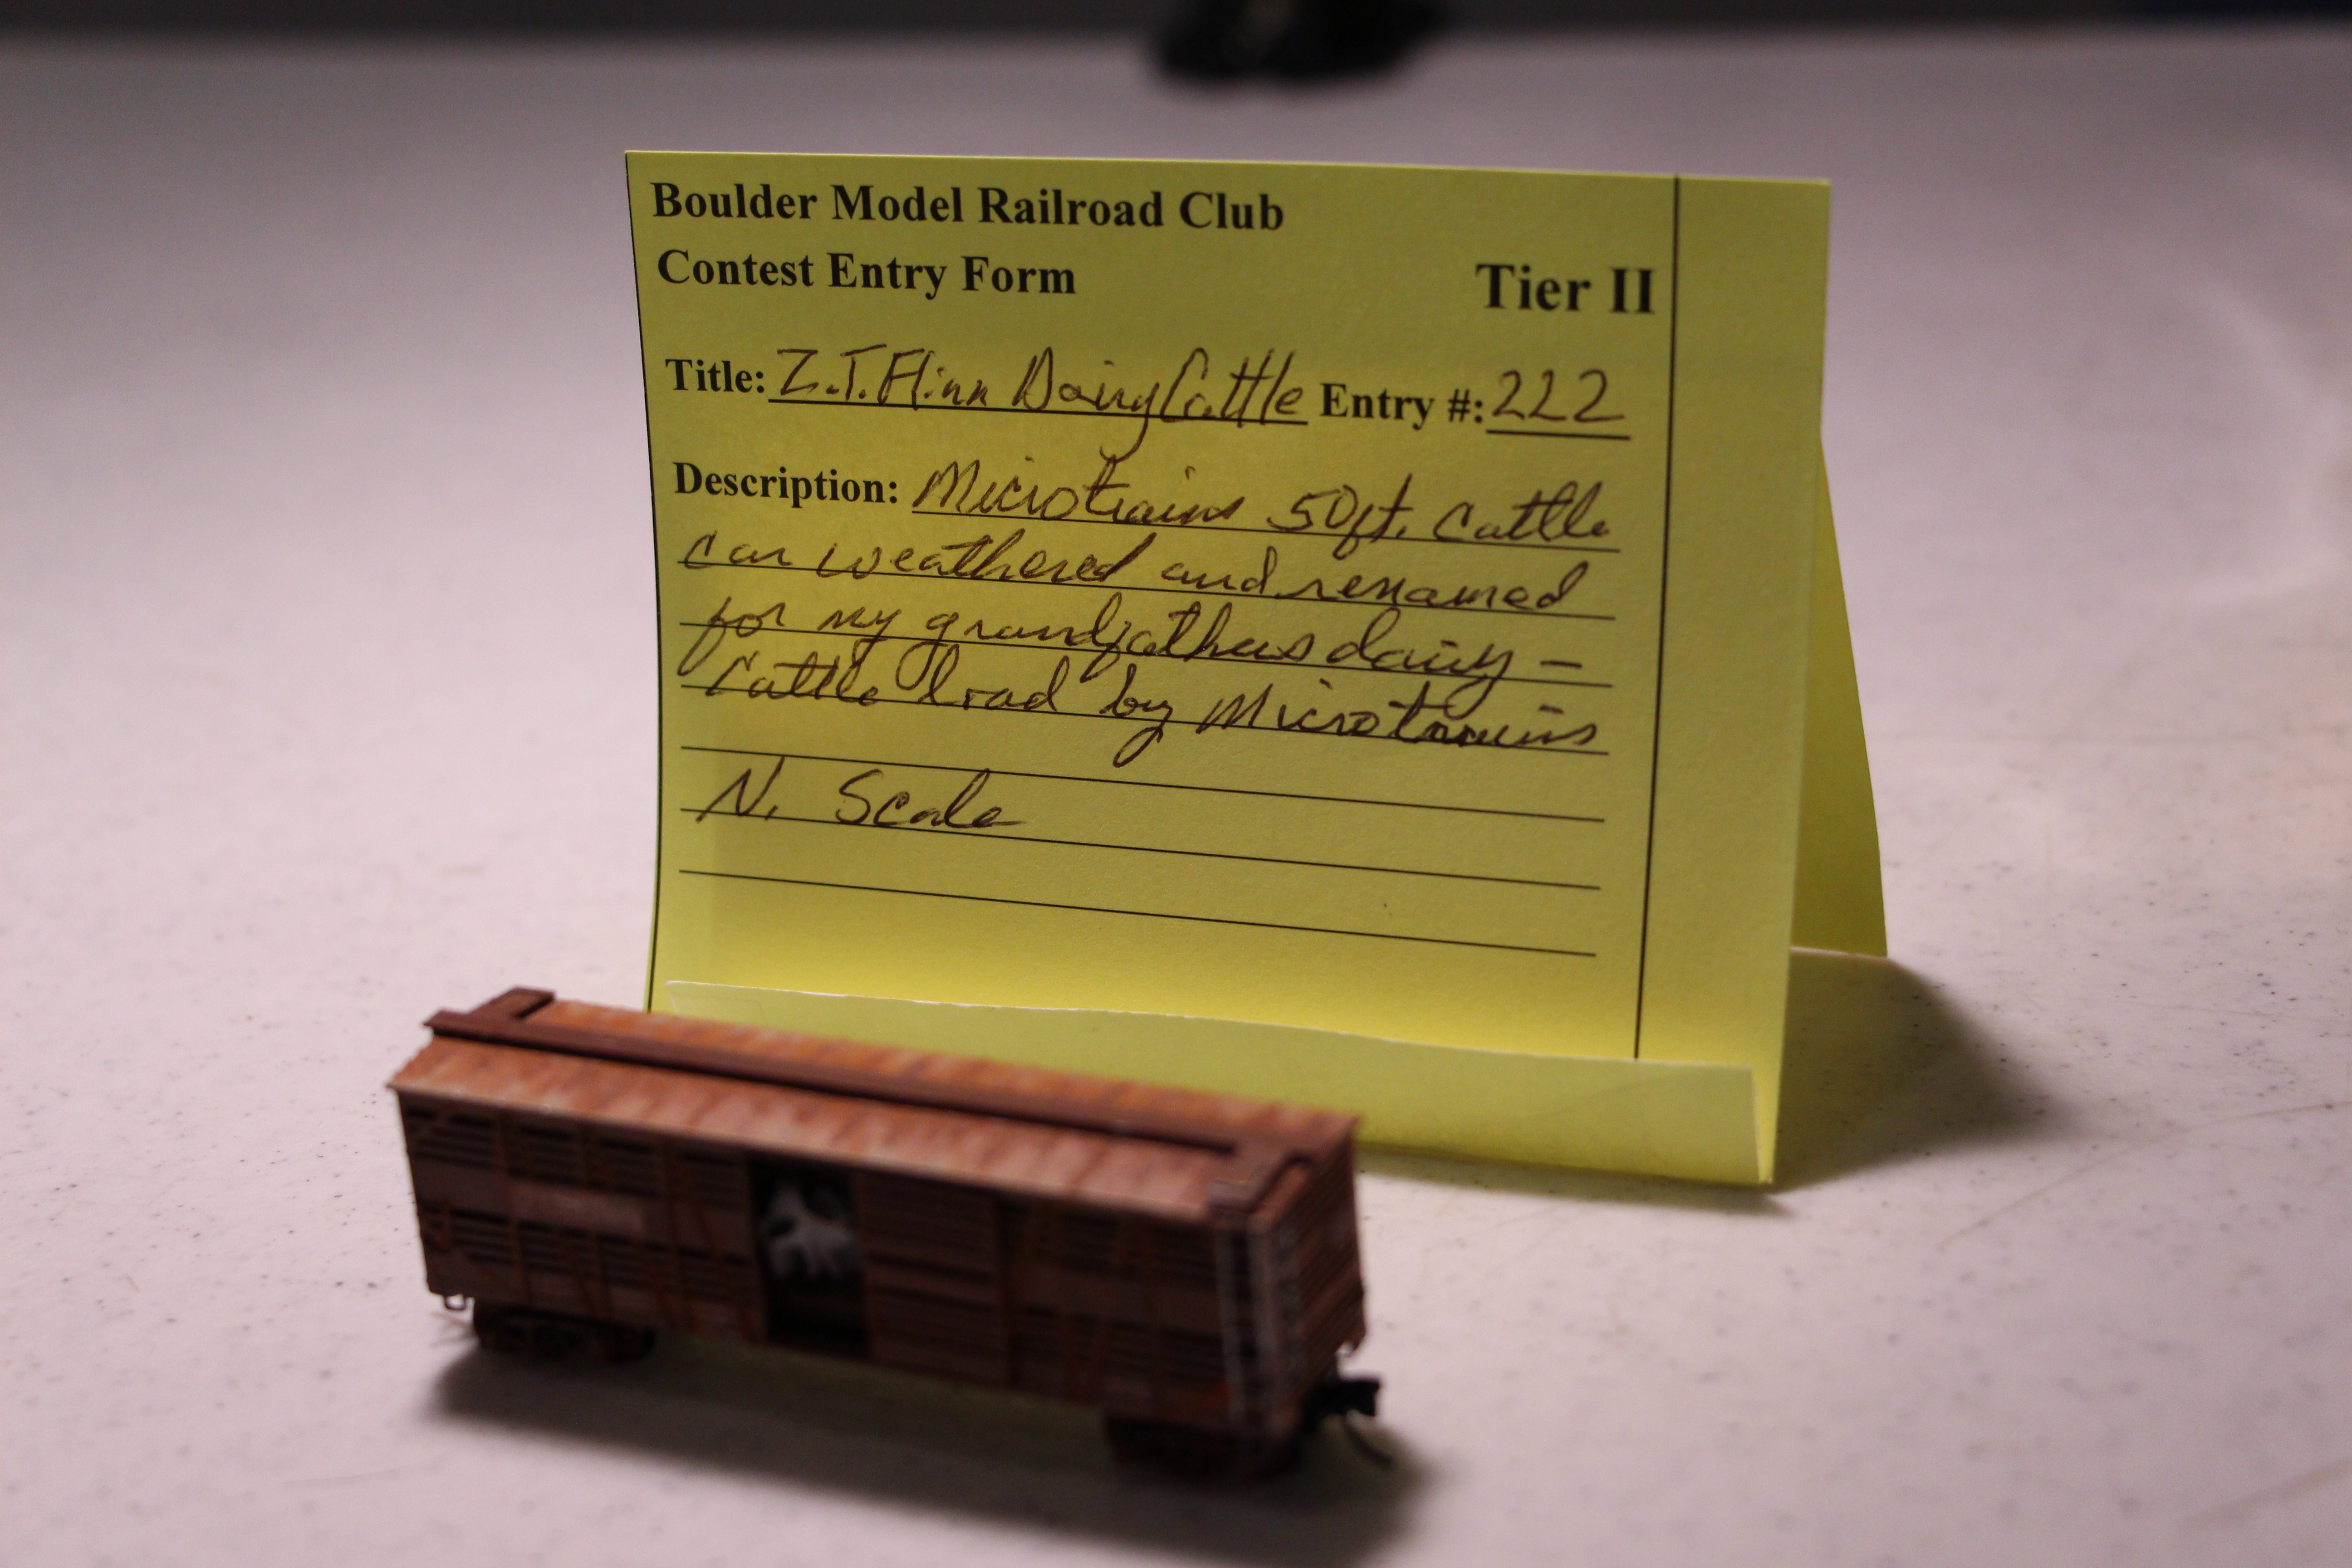 Boulder Model Railroad Club
Contest Entry Form
Tier II
Title: Z.T. Flinn Dairy Cattle Entry #: 222
Description: Microtrains 50ft. Cattle
car weathered and renamed
for my grandfathers dairy –
Cattle load by Microtrains
N. Scale